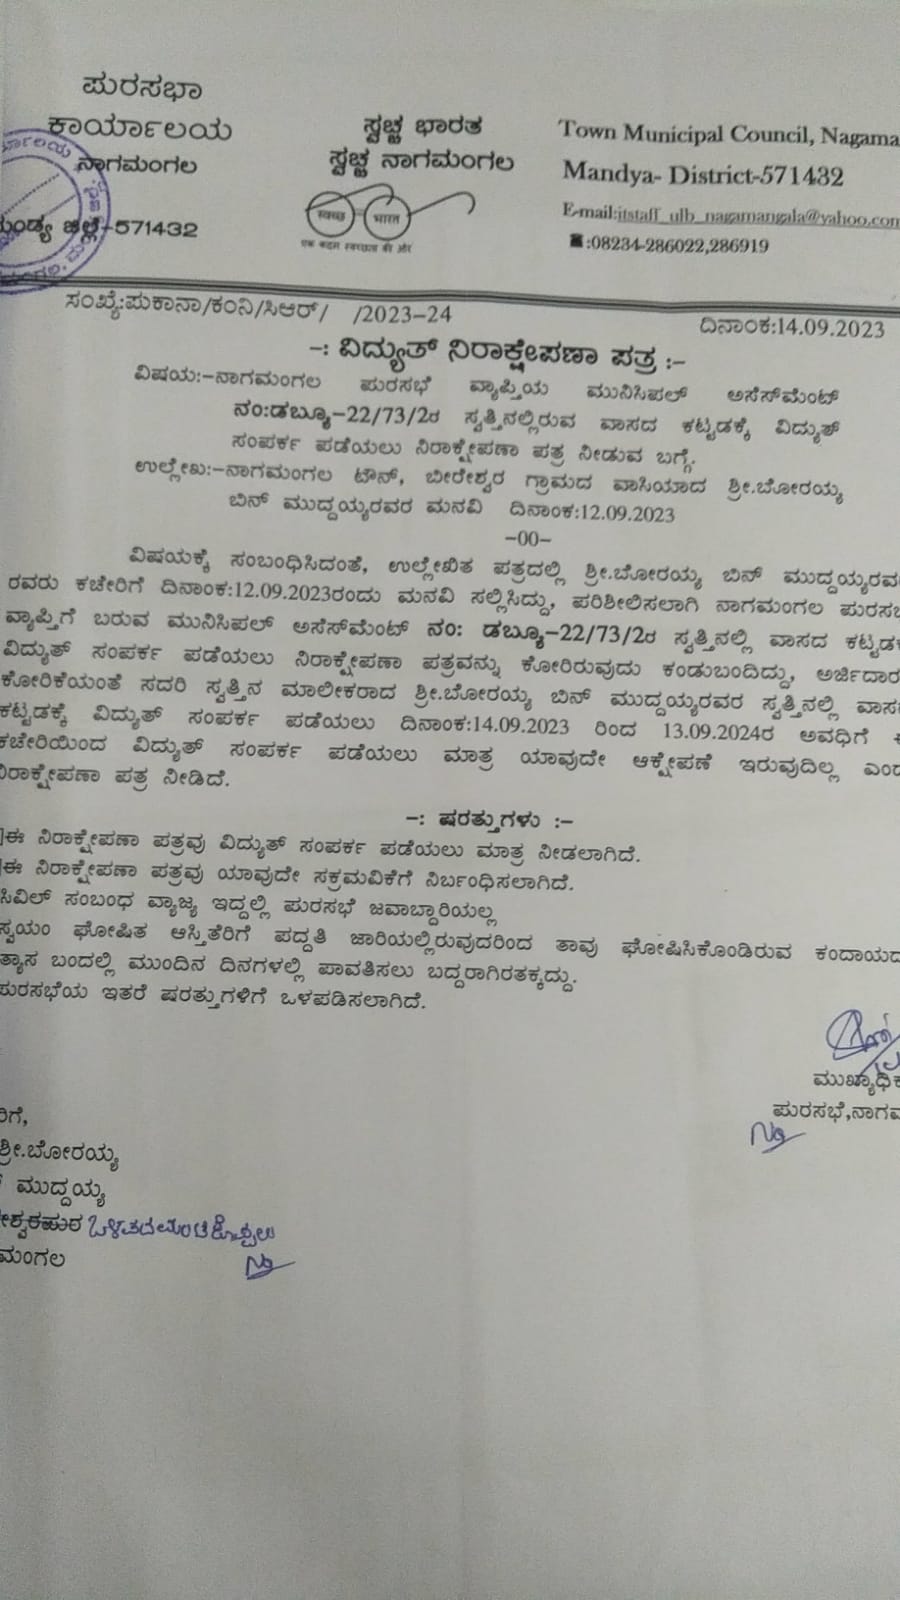 ಪುರಸಭಾ
ಕಾರ್ಯಾಲಯ
ನಾಗಮಂಗಲ
ಮಂಡ್ಯ ಜಿಲ್ಲೆ-571432
ಸ್ವಚ್ಛ ಭಾರತ
ಸ್ವಚ್ಛ ನಾಗಮಂಗಲ
स्वच्छ भारत
एक कदम स्वच्छता की ओर
Town Municipal Council, Nagama
Mandya- District-571432
E-mail:itstaff_ulb_nagamangala@yahoo.com
☎:08234-286022,286919
ಸಂಖ್ಯೆ:ಪುಕಾನಾ/ಕಂನಿ/ಸಿಆರ್/ /2023-24
ದಿನಾಂಕ:14.09.2023
-: ವಿದ್ಯುತ್ ನಿರಾಕ್ಷೇಪಣಾ ಪತ್ರ :-
ವಿಷಯ:-ನಾಗಮಂಗಲ ಪುರಸಭೆ ವ್ಯಾಪ್ತಿಯ ಮುನಿಸಿಪಲ್ ಅಸೆಸ್‌ಮೆಂಟ್
ನಂ:ಡಬ್ಯೂ-22/73/2ರ ಸ್ವತ್ತಿನಲ್ಲಿರುವ ವಾಸದ ಕಟ್ಟಡಕ್ಕೆ ವಿದ್ಯುತ್
ಸಂಪರ್ಕ ಪಡೆಯಲು ನಿರಾಕ್ಷೇಪಣಾ ಪತ್ರ ನೀಡುವ ಬಗ್ಗೆ.
ಉಲ್ಲೇಖ:-ನಾಗಮಂಗಲ ಟೌನ್, ಬೀರೇಶ್ವರ ಗ್ರಾಮದ ವಾಸಿಯಾದ ಶ್ರೀ.ಬೋರಯ್ಯ
ಬಿನ್ ಮುದ್ದಯ್ಯರವರ ಮನವಿ ದಿನಾಂಕ:12.09.2023
-00-
ವಿಷಯಕ್ಕೆ ಸಂಬಂಧಿಸಿದಂತೆ, ಉಲ್ಲೇಖಿತ ಪತ್ರದಲ್ಲಿ ಶ್ರೀ.ಬೋರಯ್ಯ ಬಿನ್ ಮುದ್ದಯ್ಯರವ
ರವರು ಕಚೇರಿಗೆ ದಿನಾಂಕ:12.09.2023ರಂದು ಮನವಿ ಸಲ್ಲಿಸಿದ್ದು, ಪರಿಶೀಲಿಸಲಾಗಿ ನಾಗಮಂಗಲ ಪುರಸಭ
ವ್ಯಾಪ್ತಿಗೆ ಬರುವ ಮುನಿಸಿಪಲ್ ಅಸೆಸ್‌ಮೆಂಟ್ ನಂ: ಡಬ್ಯೂ-22/73/2ರ ಸ್ವತ್ತಿನಲ್ಲಿ ವಾಸದ ಕಟ್ಟಡಕ
ವಿದ್ಯುತ್ ಸಂಪರ್ಕ ಪಡೆಯಲು ನಿರಾಕ್ಷೇಪಣಾ ಪತ್ರವನ್ನು ಕೋರಿರುವುದು ಕಂಡುಬಂದಿದ್ದು, ಅರ್ಜಿದಾರ
ಕೋರಿಕೆಯಂತೆ ಸದರಿ ಸ್ವತ್ತಿನ ಮಾಲೀಕರಾದ ಶ್ರೀ.ಬೋರಯ್ಯ ಬಿನ್ ಮುದ್ದಯ್ಯರವರ ಸ್ವತ್ತಿನಲ್ಲಿ ವಾಸ
ಕಟ್ಟಡಕ್ಕೆ ವಿದ್ಯುತ್ ಸಂಪರ್ಕ ಪಡೆಯಲು ದಿನಾಂಕ:14.09.2023 ರಿಂದ 13.09.2024ರ ಅವಧಿಗೆ
ಕಚೇರಿಯಿಂದ ವಿದ್ಯುತ್ ಸಂಪರ್ಕ ಪಡೆಯಲು ಮಾತ್ರ ಯಾವುದೇ ಆಕ್ಷೇಪಣೆ ಇರುವುದಿಲ್ಲ ಎಂದ
ನಿರಾಕ್ಷೇಪಣಾ ಪತ್ರ ನೀಡಿದೆ.
-: ಷರತ್ತುಗಳು :-
]ಈ ನಿರಾಕ್ಷೇಪಣಾ ಪತ್ರವು ವಿದ್ಯುತ್ ಸಂಪರ್ಕ ಪಡೆಯಲು ಮಾತ್ರ ನೀಡಲಾಗಿದೆ.
]ಈ ನಿರಾಕ್ಷೇಪಣಾ ಪತ್ರವು ಯಾವುದೇ ಸಕ್ರಮವಿಕೆಗೆ ನಿರ್ಬಂಧಿಸಲಾಗಿದೆ.
ಸಿವಿಲ್ ಸಂಬಂಧ ವ್ಯಾಜ್ಯ ಇದ್ದಲ್ಲಿ ಪುರಸಭೆ ಜವಾಬ್ದಾರಿಯಲ್ಲ
ಸ್ವಯಂ ಘೋಷಿತ ಆಸ್ತಿತೆರಿಗೆ ಪದ್ದತಿ ಜಾರಿಯಲ್ಲಿರುವುದರಿಂದ ತಾವು ಘೋಷಿಸಿಕೊಂಡಿರುವ ಕಂದಾಯದ
ತ್ಯಾಸ ಬಂದಲ್ಲಿ ಮುಂದಿನ ದಿನಗಳಲ್ಲಿ ಪಾವತಿಸಲು ಬದ್ದರಾಗಿರತಕ್ಕದ್ದು.
ಪುರಸಭೆಯ ಇತರೆ ಷರತ್ತುಗಳಿಗೆ ಒಳಪಡಿಸಲಾಗಿದೆ.
ಮುಖ್ಯಾಧಿಕ
ಪುರಸಭೆ,ನಾಗಮ
ರಿಗೆ,
ಶ್ರೀ.ಬೋರಯ್ಯ
ಮುದ್ದಯ್ಯ
ಮಂಗಲ